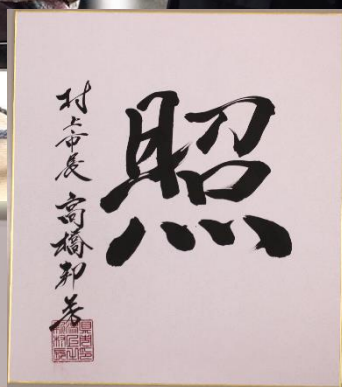 照
村上市長 高橋邦芳